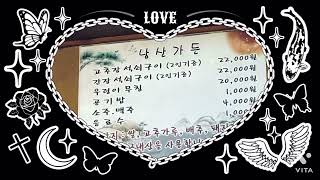 LOVE
낭산가든
고추장석쇠구이 (2인기준) 22,000원
간장석쇠구이 (2인기준) 22,000원
우렁이무침 20,000원
공기밥 1,000원
소주, 맥주 4,000원
음료수 1,000원
고춧가루, 배추,
국내산을 사용합니다
VITA